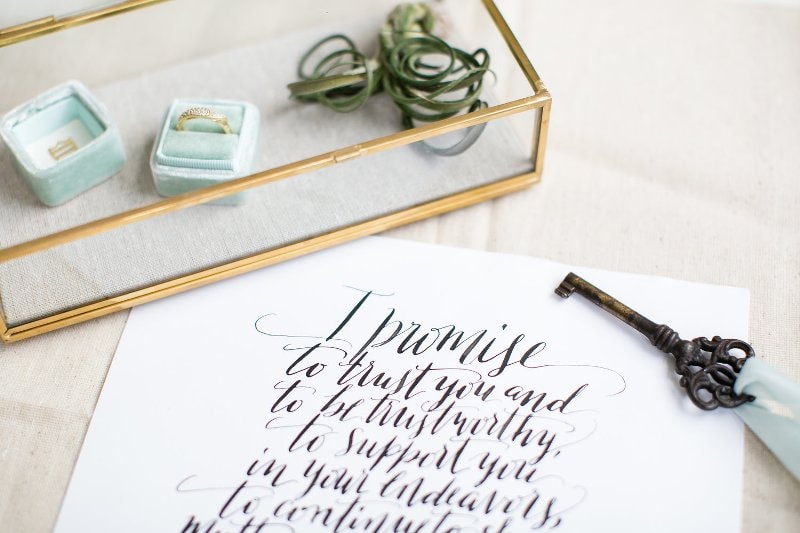 I promise
to trust you and
to be trustworthy,
to support you
in your endeavors,
to continue to